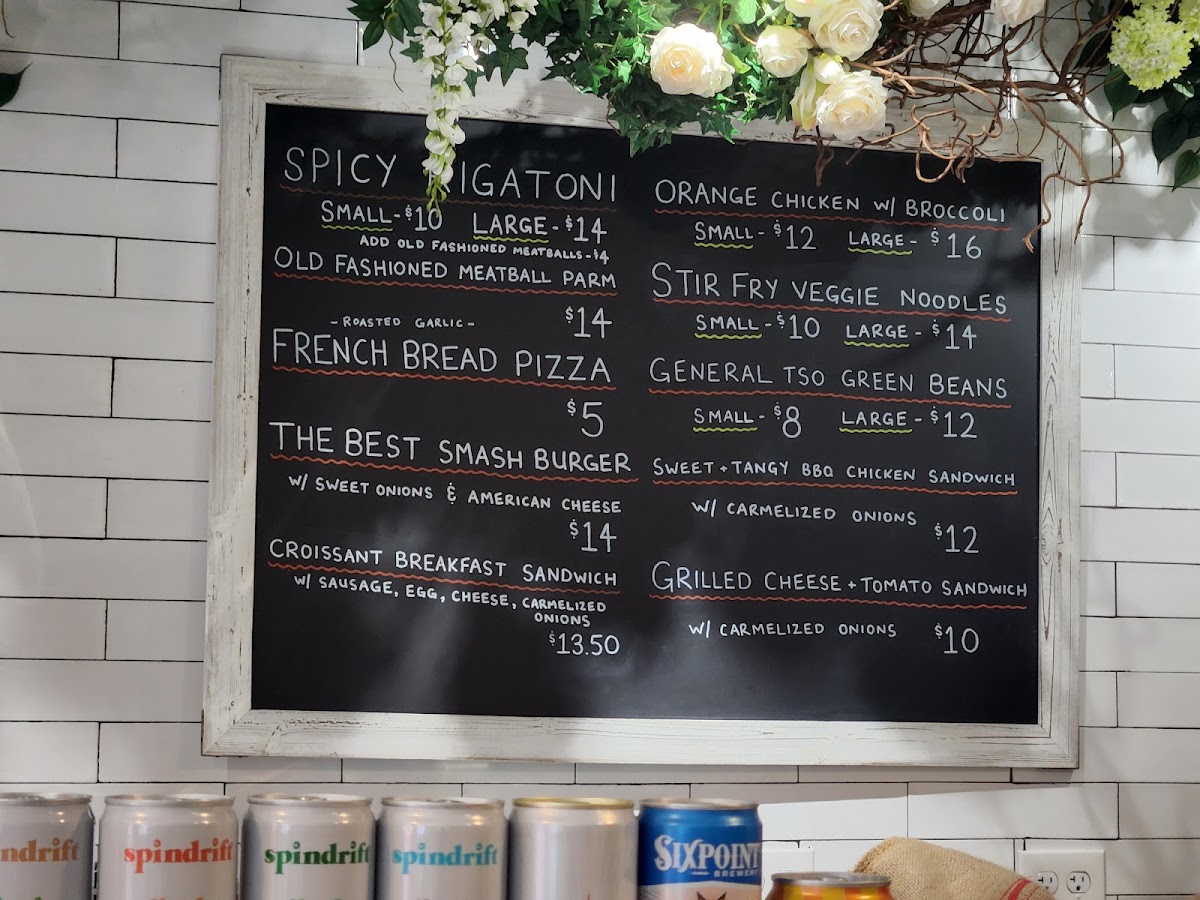 SPICY RIGATONI
SMALL-$10 LARGE-$14
ADD OLD FASHIONED MEATBALLS-$4
OLD FASHIONED MEATBALL PARM
$14
-ROASTED GARLIC-
FRENCH BREAD PIZZA
$5
THE BEST SMASH BURGER
W/ SWEET ONIONS & AMERICAN CHEESE
$14
CROISSANT BREAKFAST SANDWICH
W/ SAUSAGE, EGG, CHEESE, CARMELIZED
ONIONS
$13.50
ORANGE CHICKEN W/ BROCCOLI
SMALL-$12 LARGE-$16
STIR FRY VEGGIE NOODLES
SMALL-$10 LARGE-$14
GENERAL TSO GREEN BEANS
SMALL-$8 LARGE-$12
SWEET + TANGY BBQ CHICKEN SANDWICH
W/ CARMELIZED ONIONS
$12
GRILLED CHEESE + TOMATO SANDWICH
W/ CARMELIZED ONIONS $10
ndrift
spindrift
spindrift
spindrift
SIXPOINT
BREWERY